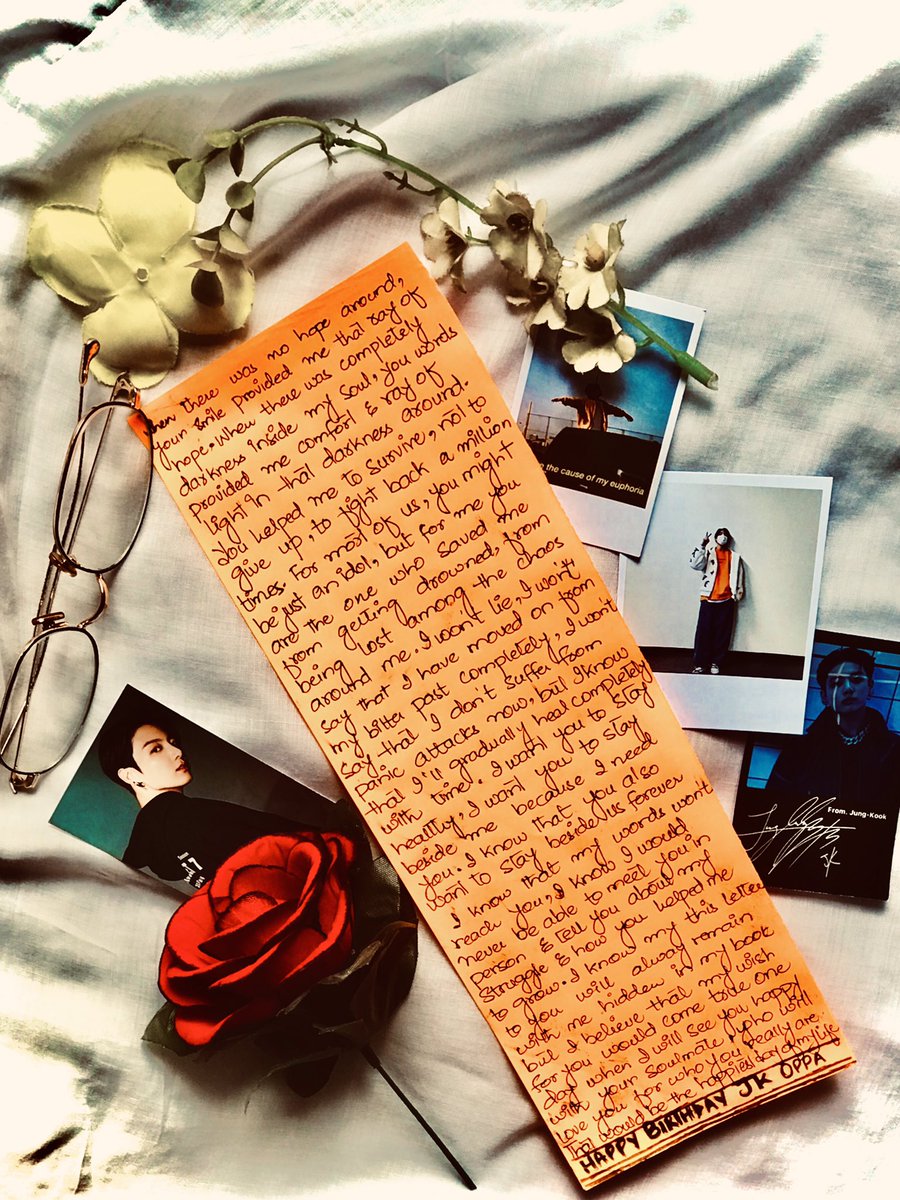 When there was no hope around,
your smile provided me that ray of
hope. When there was completely
darkness inside my soul, you words
provided me comfort & ray of
light in that darkness around.
You helped me to survive, not to
give up, to fight back a million
times. For most of us, you might
be just an idol, but for me you
are the one who saved me
from getting drowned, from
being lost among the chaos
around me. I won't lie, I won't
say that I have moved on from
my bitter past completely, I won't
say that I don't suffer from
panic attacks now, but I know
that I'll gradually heal completely
with time. I want you to stay
healthy, I want you to stay
beside me because I need
you. I know that you also
want to stay beside us forever
I know that my words won't
reach you, I know I would
never be able to meet you in
person & tell you about my
struggle & how you helped me
to grow. I know my this letter
to you will alway remain
with me hidden in my book
but I believe that my wish
for you would come true one
day when I will see you happy
with your soulmate, who will
love you for who you really are
That would be the happiest day of my life
HAPPY BIRTHDAY JK OPPA
the cause of my euphoria
From. Jung-Kook
JK